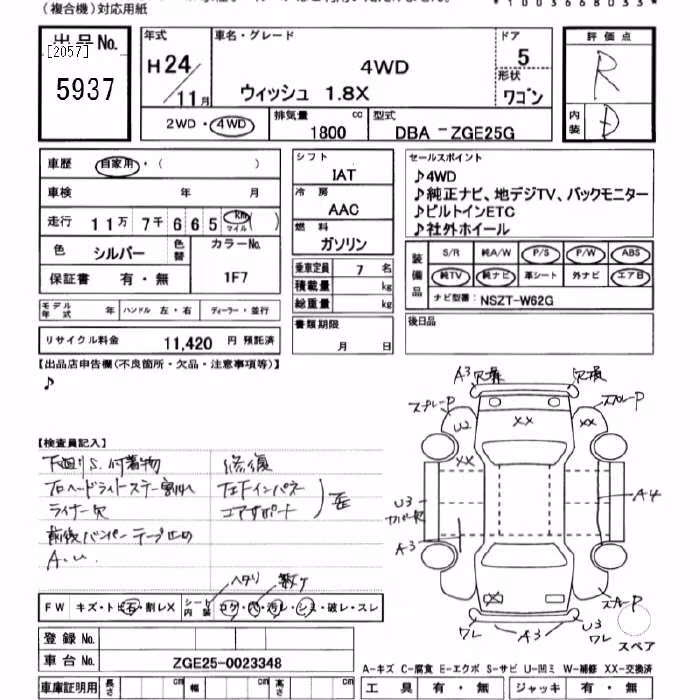 (複合機)対応用紙
*1003668033*
出品No.
[2057]
5937
年式
H24/11月
車名・グレード
4WD
ウィッシュ 1.8X
ドア
5
形状
ワゴン
評価点
R
内装
D
2WD・4WD
排気量
1800 cc
型式
DBA - ZGE25G
車歴 自家用・( )
車検 年 月
走行 11万 7千 665 km マイル ( )
色 シルバー 色替 カラーNo.
保証書 有・無 1F7
モデル年式 年 ハンドル 左・右 ディーラー・並行
リサイクル料金 11,420 円 預託済
シフト
IAT
冷房
AAC
燃料
ガソリン
乗車定員 7 名
積載量 kg
総重量 kg
書類期限
月 日
セールスポイント
♪4WD
♪純正ナビ、地デジTV、バックモニター
♪ビルトインETC
♪社外ホイール
装備品
S/R 純A/W P/S P/W ABS
純TV 純ナビ 革シート 外ナビ エアB
ナビ型番: NSZT-W62G
後日品
【出品店申告欄(不良箇所・欠品・注意事項等)】
♪
【検査員記入】
下廻りS. 付着物
右ヘッドライトステー割れ
ライナー欠
前後バンパーテープ止め
A.U.
修復
左下インパネ
コアサポート
歪
ヘタリ
FW キズ・トビ石・割レX シート内装 コゲ・穴・汚レ・シミ・破レ・スレ
登録No.
車台No. ZGE25-0023348
車庫証明用 長さ cm 幅 cm 高さ cm
A3 欠損
欠損
スプレーP
スプレーP
U2
XX
XX
XX
U3
カバー欠
A3
A4
スプレーP
XX
ワレ
A3
U3
ワレ
スペア
A-キズ C-腐食 E-エクボ S-サビ U-凹ミ W-補修 XX-交換済
工具 有・無 ジャッキ 有・無